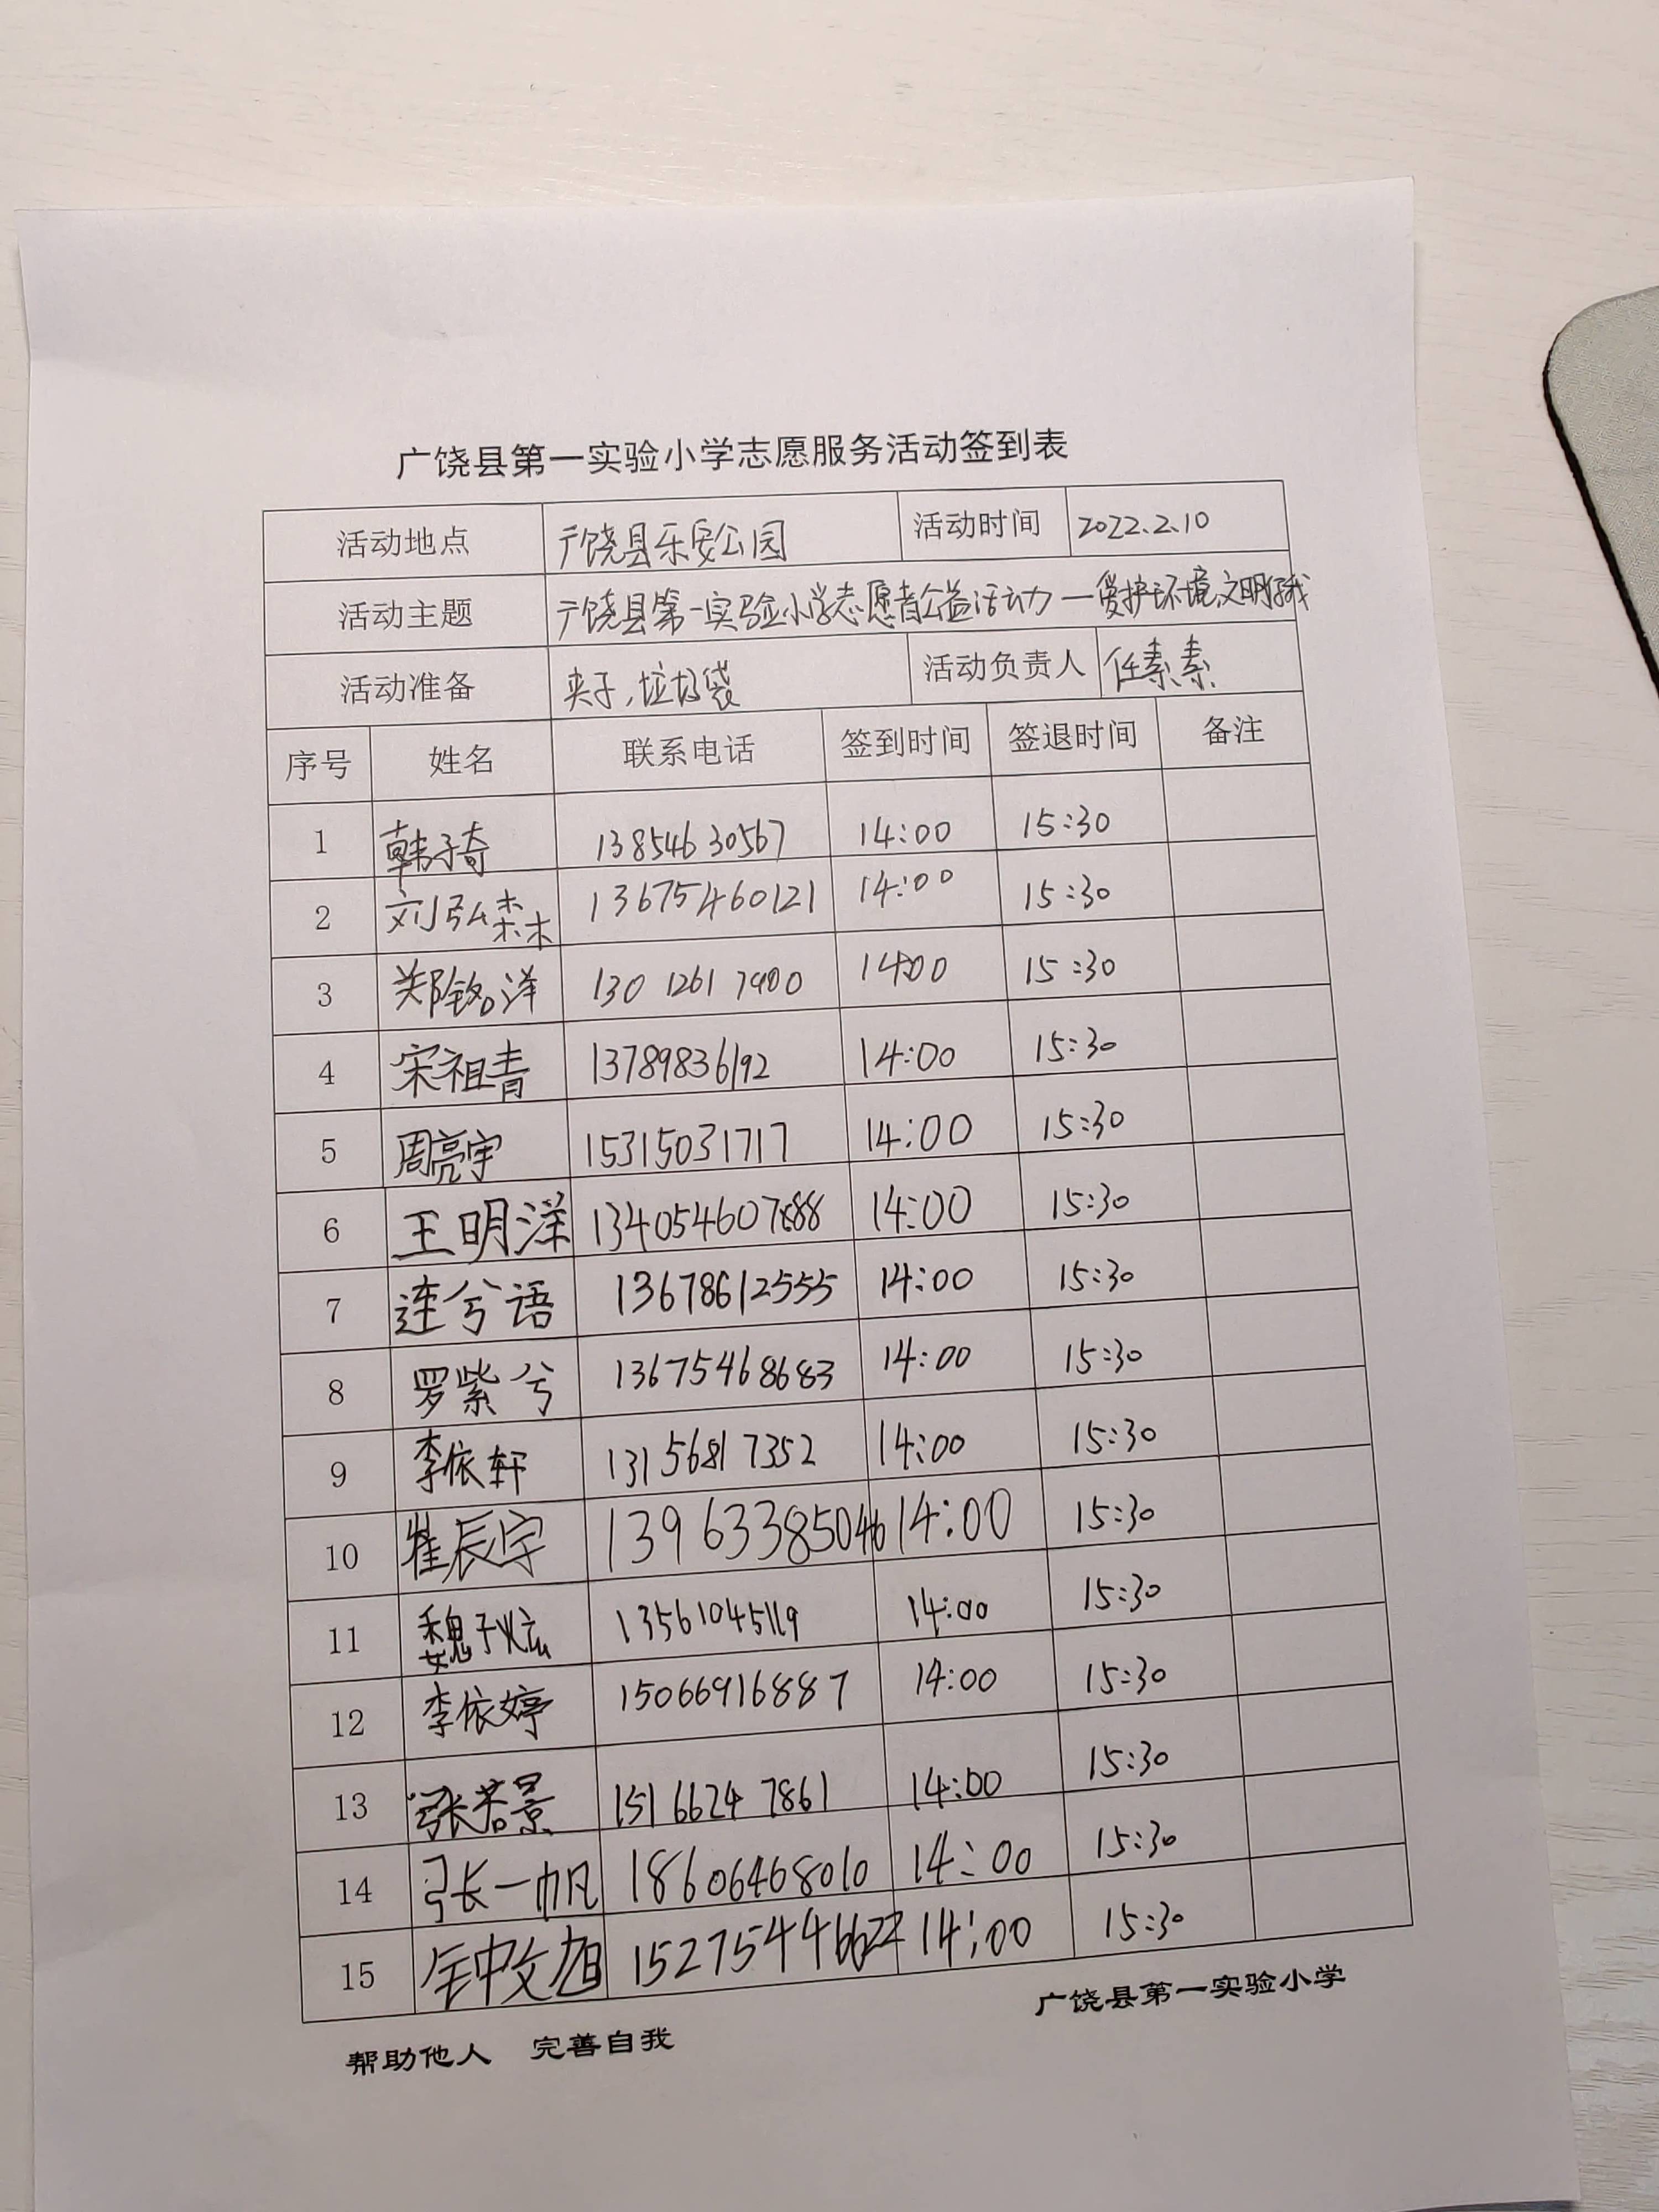 广饶县第一实验小学志愿服务活动签到表
活动地点 广饶县乐安公园 活动时间 2022.2.10
活动主题 广饶县第一实验小学志愿者公益活动一爱护环境,文明你我
活动准备 夹子,垃圾袋 活动负责人 任素素
序号 姓名 联系电话 签到时间 签退时间 备注
1 韩子奇 13854630567 14:00 15:30
2 刘弘森 13675460121 14:00 15:30
3 郑铭洋 130 1261 7900 14:00 15:30
4 宋祖青 13789836192 14:00 15:30
5 周亮宇 15315031717 14:00 15:30
6 王明洋 14:00 15:30
7 连兮语 13678612555 14:00 15:30
8 罗紫兮 13675468683 14:00 15:30
9 李依轩 131 5681 7352 14:00 15:30
10 崔辰宇 13963385046 14:00 15:30
11 魏子炫 13561045119 14:00 15:30
12 李依婷 15066916887 14:00 15:30
13 张若景 151 6624 7861 14:00 15:30
14 张一帆 18606468010 14:00 15:30
15 14:00 15:30
广饶县第一实验小学
帮助他人 完善自我